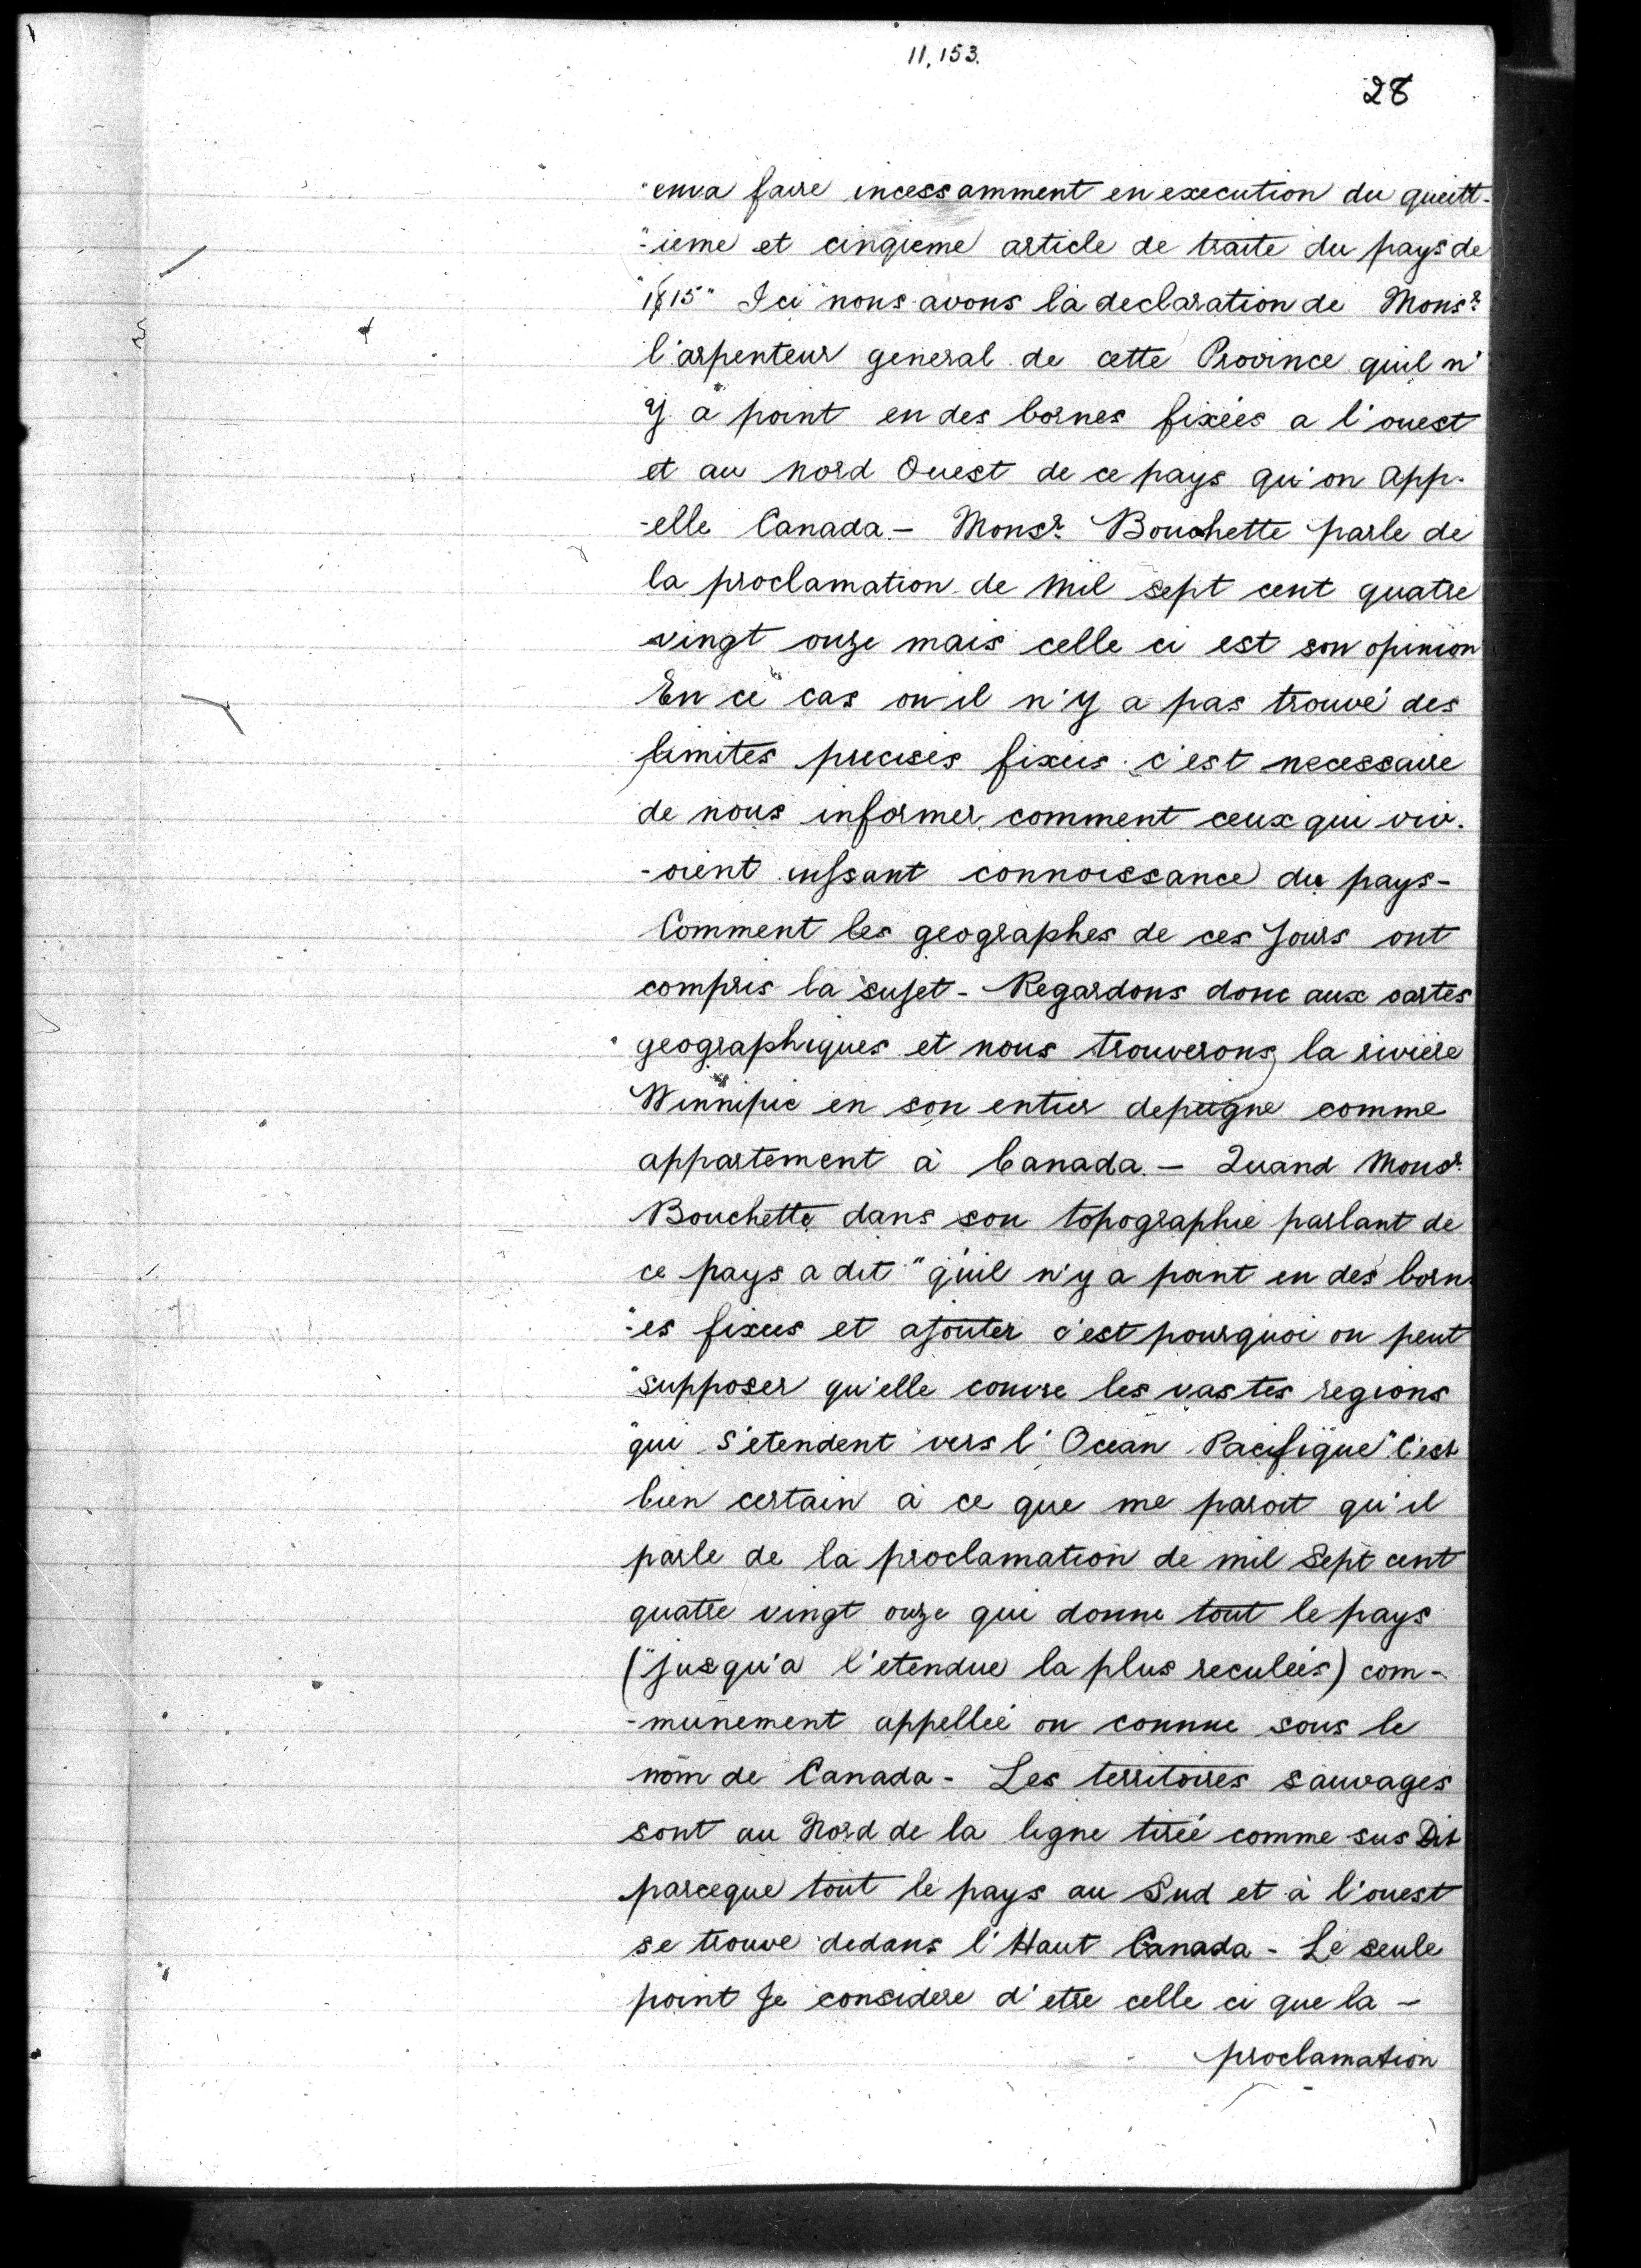 11,153.
28
"enva faire incessamment en execution du queitt-
"-ieme et cinqieme article de traite du pays de
"1815" Ici nous avons la declaration de Monsr.
l'arpenteur general de cette Province quil n'
y a point en des bornes fixées a l'ouest
et au nord Ouest de ce pays qu'on app-
-elle Canada - Monsr. Bouchette parle de
la proclamation de mil sept cent quatre
vingt onze mais celle ci est son opinion
En ce cas on il n'y a pas trouvé des
limites precises fixeis c'est necessaire
de nous informer comment ceux qui viv-
-oient connoissance du pays -
Comment les geographes de ces Jours ont
compris la sujet - Regardons donc aux cartes
geographiques et nous trouverons la riviere
Winnipic en son entier depeigne comme
appartement à Canada - Quand Monsr.
Bouchette dans son topographie parlant de
ce pays a dit "qu'il n'y a point en des born
"-es fixeis et ajouter c'est pourquoi on peut
"supposer qu'elle couvre les vastes regions
"qui s'etendent vers l'Ocean Pacifique" C'est
bien certain à ce que me paroit qu'il
parle de la proclamation de mil Sept cent
quatre vingt onze qui donne tout le pays
("jusqu'a l'etendue la plus reculeés) com-
-munement appelleé ou connue sous le
nom de Canada - Les territoires sauvages
sont au Nord de la ligne tireé comme sus Dit
parceque tout le pays au Sud et à l'ouest
se trouve dedans l'Haut Canada - Le seule
point Je considere d'etre celle ci que la -
proclamation